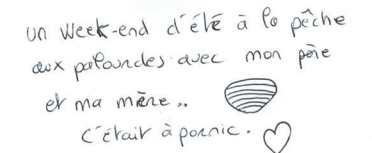 un week-end d'été à la pêche
aux palourdes avec mon père
et ma mère..
c'était à pornic.